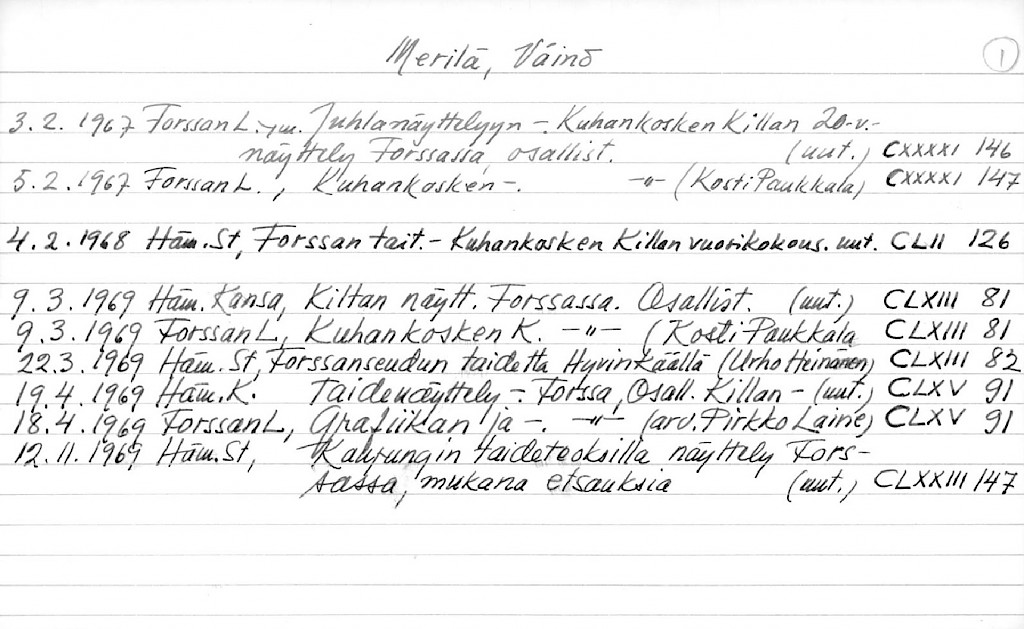 Merilä, Väinö 1
3.2.1967 Forssan L. ym. Juhlanäyttelyyn - Kuhankosken Killan 20-v.-
näyttely Forssassa, osallist. (uut.) CXXXXI 146
5.2.1967 Forssan L., Kuhankosken -. -"- (Kosti Paukkala) CXXXXI 147
4.2.1968 Häm. St, Forssan tait. - Kuhankosken Killan vuosikokous. uut. CLII 126
9.3.1969 Häm. Kansa, Killan näytt. Forssassa. Osallist. (uut.) CLXIII 81
9.3.1969 Forssan L, Kuhankosken K. -"- (Kosti Paukkala CLXIII 81
22.3.1969 Häm. St, Forssanseudun taidetta Hyvinkäällä (Urho Heinänen) CLXIII 82
19.4.1969 Häm. K. Taidenäyttely - Forssa, Osall. Killan - (uut.) CLXV 91
18.4.1969 Forssan L, Grafiikan ja -. -"- (arv. Pirkko Laine) CLXV 91
12.11.1969 Häm. St, Kaupungin taideteoksilla näyttely Fors-
sassa, mukana etsauksia (uut.) CLXXIII 147